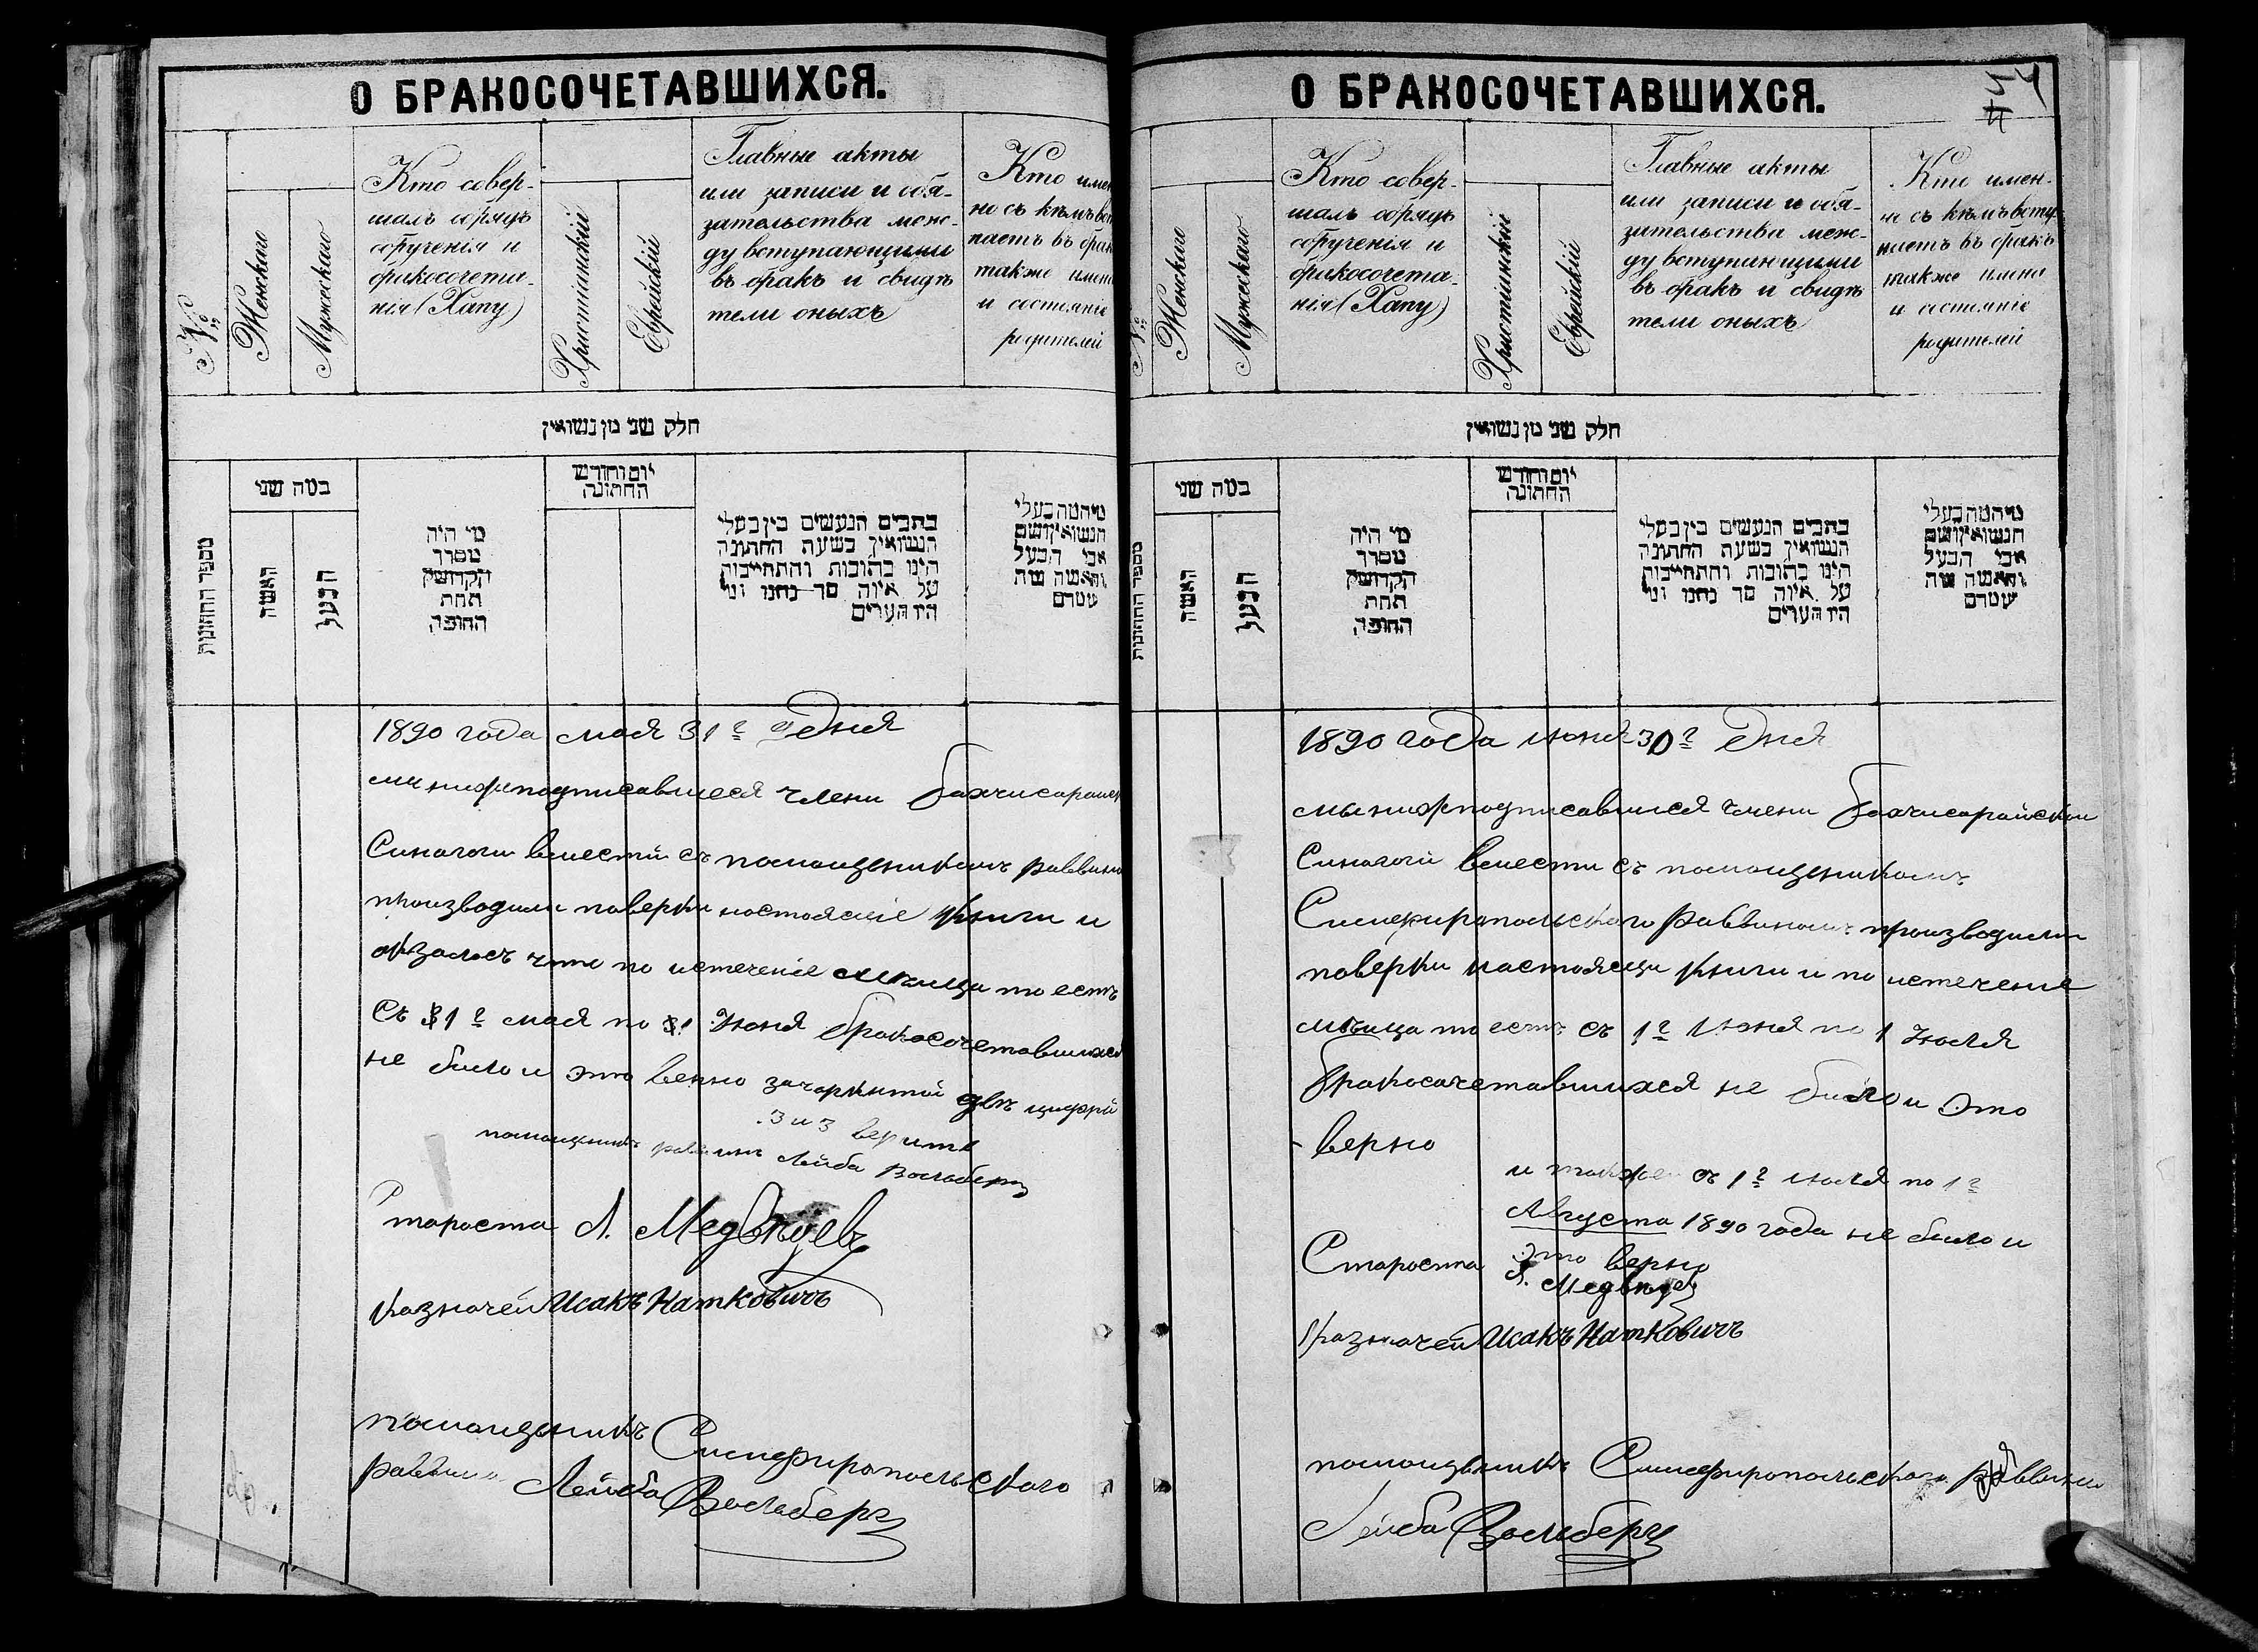 О БРАКОСОЧЕТАВШИХСЯ.
№
Женскаго
Мужескаго
Кто совер-
шалъ обрядъ
обрученія и
бракосочета-
нія (Хапу)
Христіанскій
Еврейскій
Главные акты
или записи и обя-
зательства меж-
ду вступающими
въ бракъ и свидѣ
тели оныхъ
Кто имен
но съ кѣмъ вст
паетъ въ брак
также имен
и состояніе
родителей
חלק שני מן נשואין
מספר החתונות
כמה שני
האשה
הבעל
מי היה
מסדר
הקדושין
תחת
החופה
יום וחודש
החתונה
כתבים הנעשים בין בעלי
הנשואין בשעת החתונה
הינו כתובות והתחייבות
על איזה סך נתנו ומי
היו העדים
מיהמה בעלי
הנשואין ושם
אבי הבעל
והאשה מה
שמדם
1890 года мая 31го дня
ми нижеподписавшеся члени бахчисарайск
Синагоги вмести съ помощникомъ раввина
производили поверки настоясціе книги и
оказалось что по истеченіе мѣсица то есть
съ 31го мая по 31 Июня бракосочетавшихся
не било и это верно зачоркнтій двѣ цифри
3 и 3 верить
помощникъ раввинъ Лейба Вольберг
Староста Л. Медвѣдевъ
Казначей Исакъ Наткович
помощникъ Симферопольскаго
раввина Лейба Вольберг
О БРАКОСОЧЕТАВШИХСЯ.
4
№
Женскаго
Мужескаго
Кто совер-
шалъ обрядъ
обрученія и
бракосочета-
нія (Хапу)
Христіанскій
Еврейскій
Главные акты
или записи и обя-
зательства меж-
ду вступающими
въ бракъ и свидѣ
тели оныхъ
Кто имен-
но съ кѣмъ всту-
паетъ въ бракъ
также имена
и состояніе
родителей
חלק שני מן נשואין
מספר החתונות
כמה שני
האשה
הבעל
מי היה
מסדר
הקדושין
תחת
החופה
יום וחודש
החתונה
כתבים הנעשים בין בעלי
הנשואין בשעת החתונה
הינו כתובות והתחייבות
על איזה סך נתנו ומי
היו העדים
מיהמה בעלי
הנשואין ושם
אבי הבעל
והאשה מה
שמדם
1890 года июня 30го дня
мы нижеподписавшися члени бахчисарайскии
Синагоги вмести съ помощникомъ
Симферопольскаго раввиномъ производили
поверки настоясци книги и по истечение
мѣсица то есть съ 1го Июня по 1 Июля
бракосочетавшихся не било и это
верно
и также съ 1го июля по 1го
Августа 1890 года не било и
это верно
Староста Л. Медвѣдев
Казначей Исакъ Наткович
помощникъ Симферопольскаго раввина
Лейба Вольберг